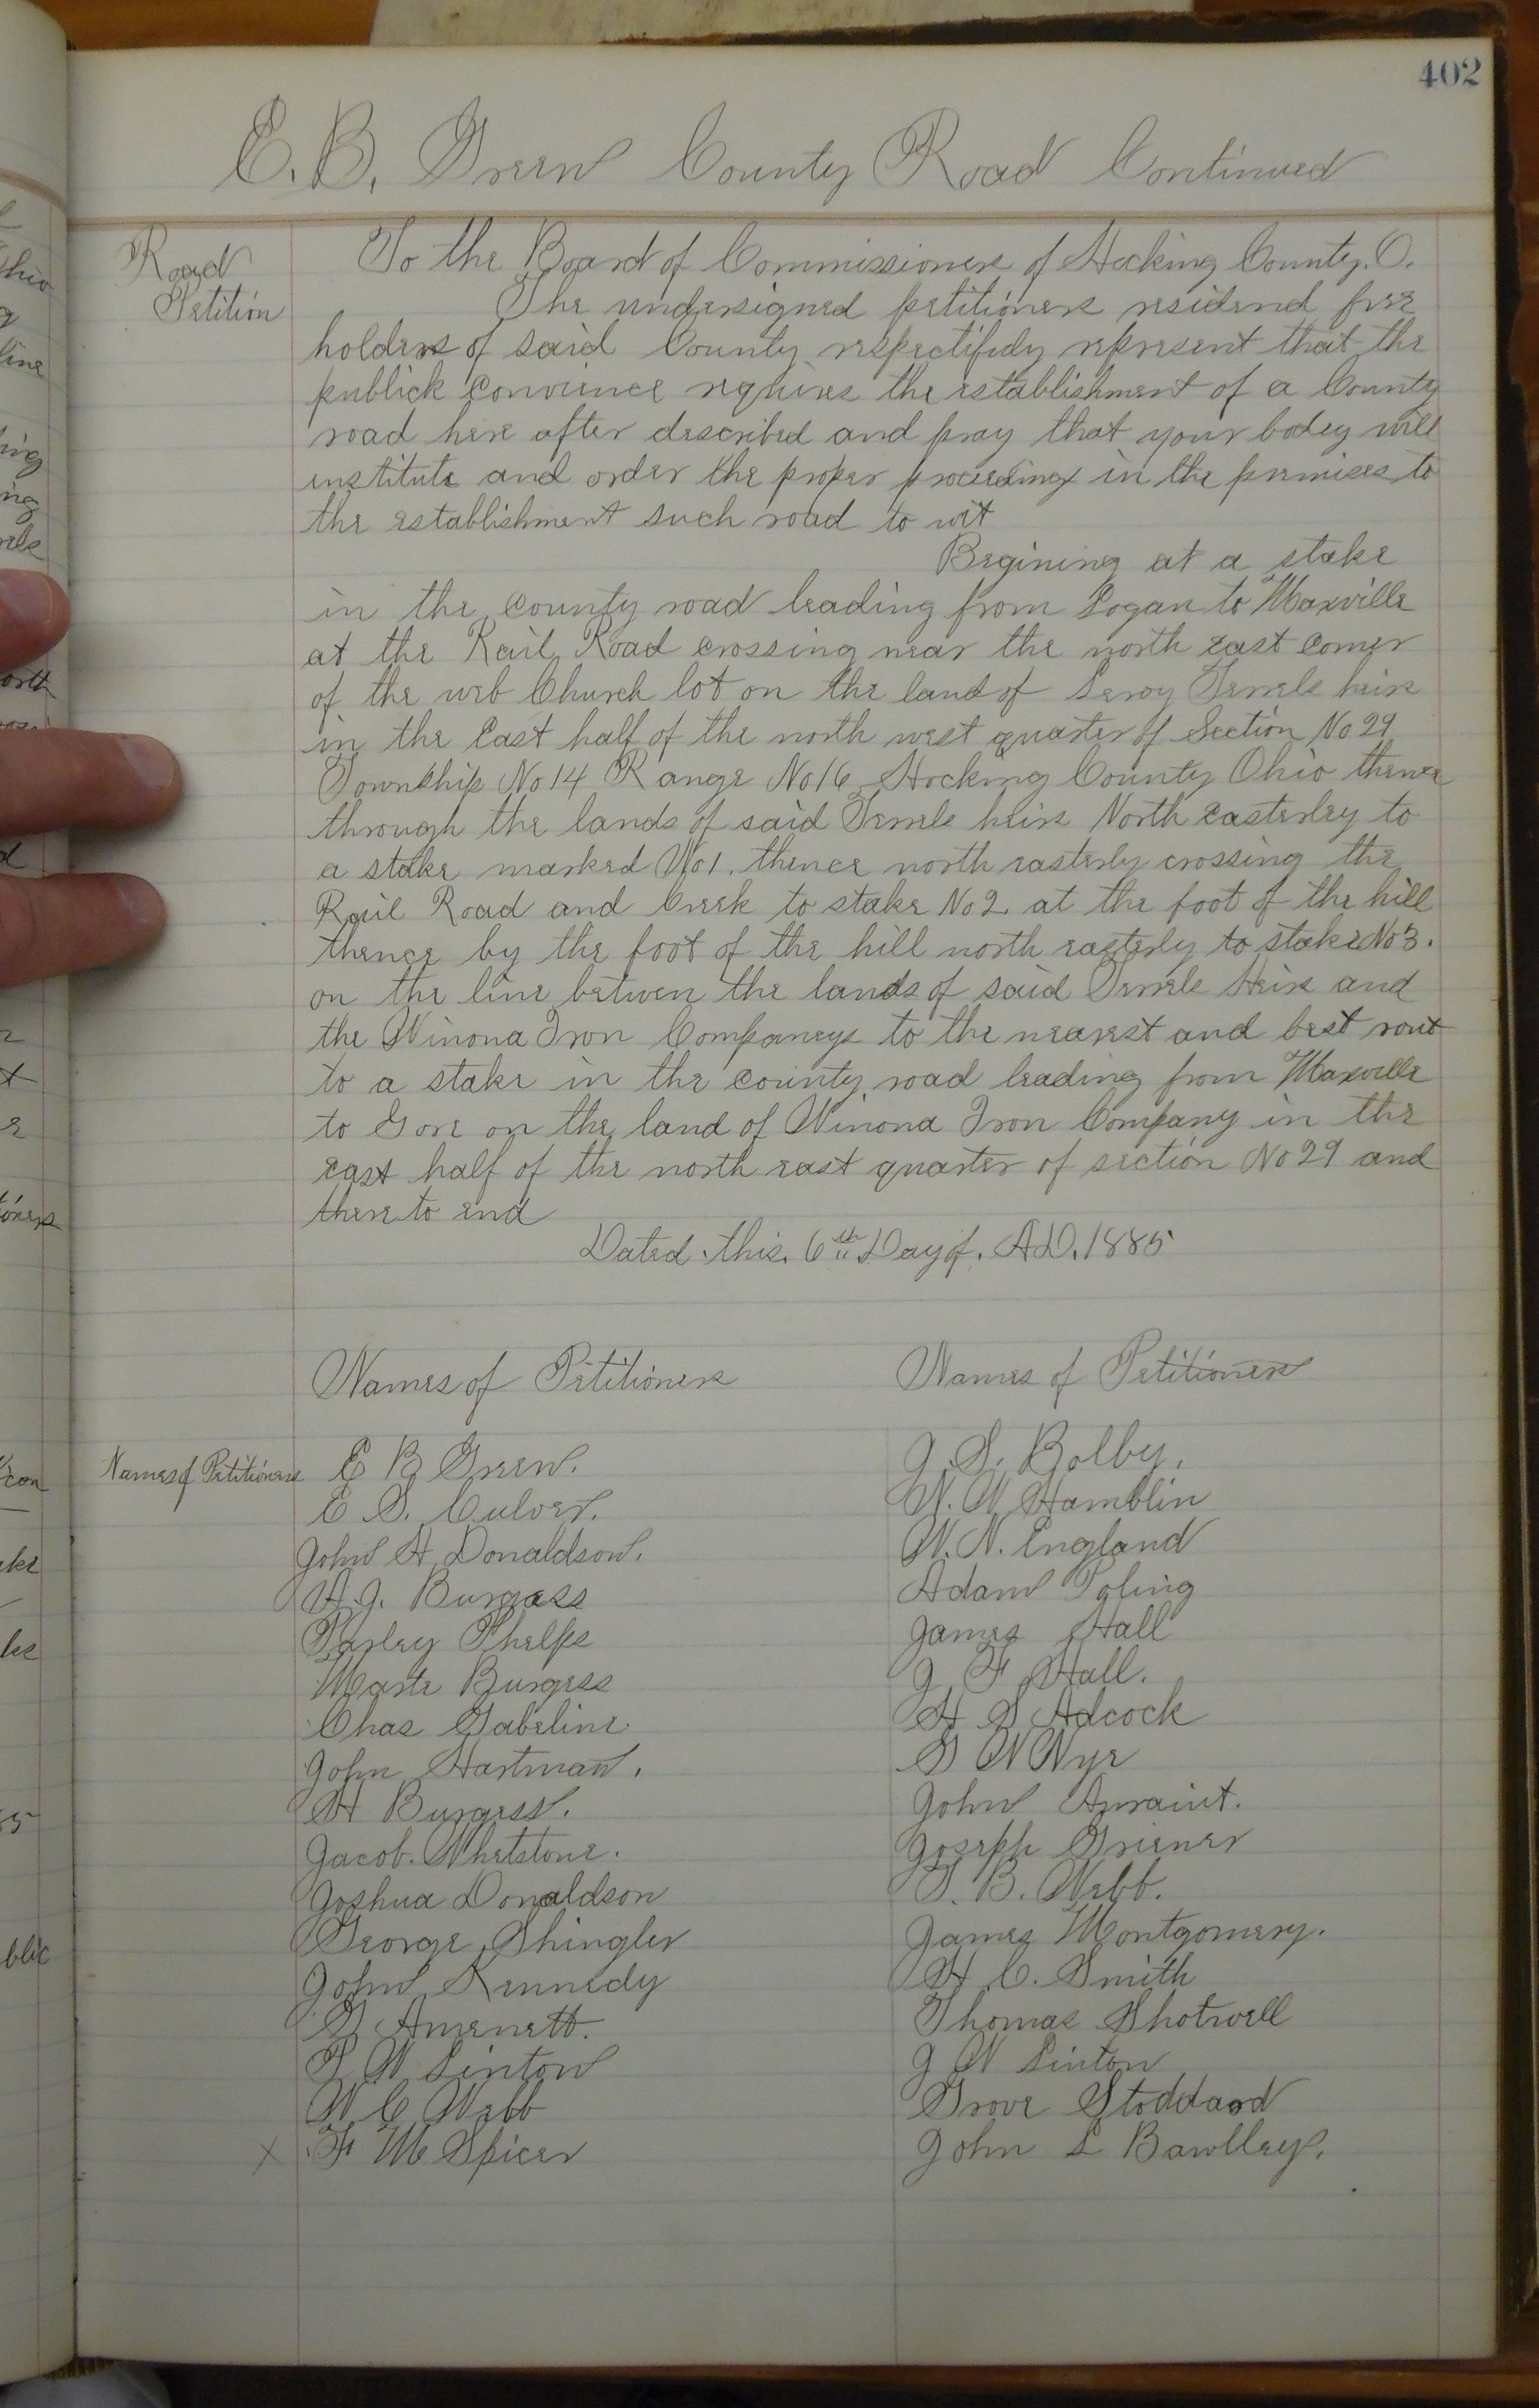 402
E. B. Green County Road Continued
Road
Petition
To the Board of Commissioners of Hocking County. O.
The undersigned petitioners residend free
holders of said County respectifuly represent that the
publick convience requires the establishment of a County
road here after described and pray that your bodey will
institute and order the proper proceedings in the premises to
the establishment such road to wit
Begining at a stake
in the county road leading from Logan to Maxville
at the Rail Road crossing near the north east corner
of the web Church lot on the land of Leroy Terrels heirs
in the East half of the north west quarter of Section No 29
Township No 14 Range No 16 Hocking County Ohio thence
through the lands of said Terrels heirs North easterley to
a stake marked No 1. thence north easterly crossing the
Rail Road and Creek to stake No 2 at the foot of the hill
thence by the foot of the hill north easterly to stake No 3.
on the line betwen the lands of said Terrels Heirs and
the Winona Iron Companeys to the nearest and best rout
to a stake in the county road leading from Maxville
to Gore on the land of Winona Iron Company in the
east half of the north east quarter of section No 29 and
there to end
Dated this. 6th Day of. A.D. 1885
Names of Petitioners
Names of Petitioners
Names of Petitioners
E B Green.
E S. Culver.
John H Donaldson.
A. J. Burgess
Parley Phelps
Marte Burgess
Chas Gabeline
John Hartman.
H Burgess.
Jacob. Whetstone.
Joshua Donaldson
George Shingler
John Kennedy
G Amenett.
T. W Linton
W C Webb
x F M Spicer
J. S. Bolby.
N. W Hamblin
W. N. England
Adam Poling
James Hall
J F Hall.
H S Adcock
G W Nye
John
Joseph Griener
T. B. Webb.
James Montgomery.
H C. Smith
Thomas Shotwell
J W Linton
Grove Stoddard
John L Bawlley.